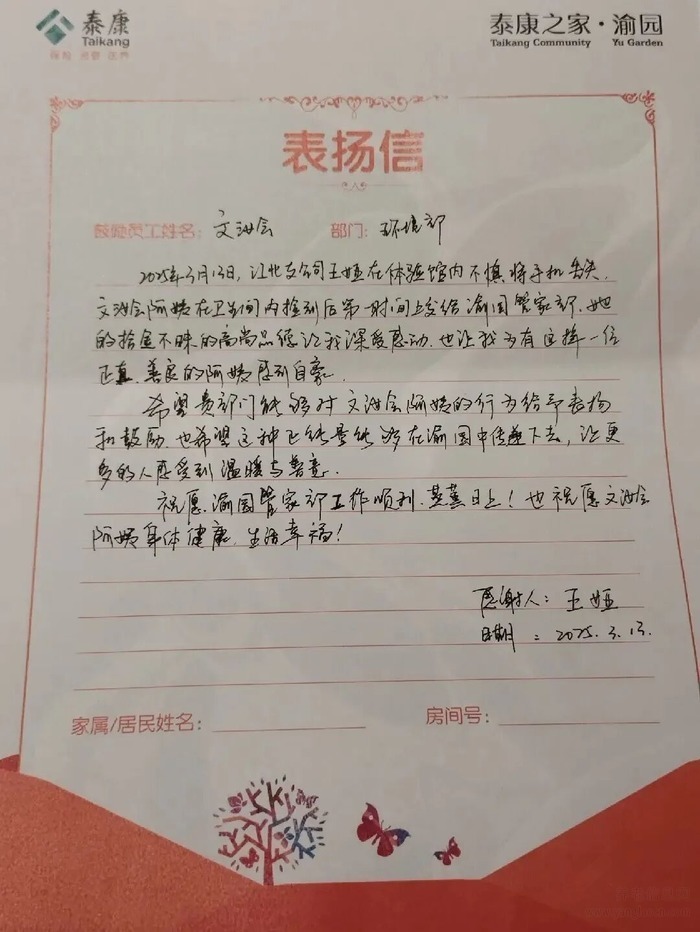 泰康
Taikang
保险 资管 医养
泰康之家·渝园
Taikang Community Yu Garden
表扬信
鼓励员工姓名：文治会 部门：环境部
2025年3月13日，江北支公司王娅在体验馆内不慎将手机丢失，
文治会阿姨在卫生间内捡到后第一时间上交给渝园管家部，她
的拾金不昧的高尚品德让我深受感动，也让我为有这样一位
正直、善良的阿姨感到自豪。
希望贵部门能够对文治会阿姨的行为给予表扬
和鼓励，也希望这种正能量能够在渝园中传递下去，让更
多的人感受到温暖与善意。
祝愿渝园管家部工作顺利，蒸蒸日上！也祝愿文治会
阿姨身体健康，生活幸福！
感谢人：王娅
日期：2025.3.13.
家属/居民姓名：
房间号：